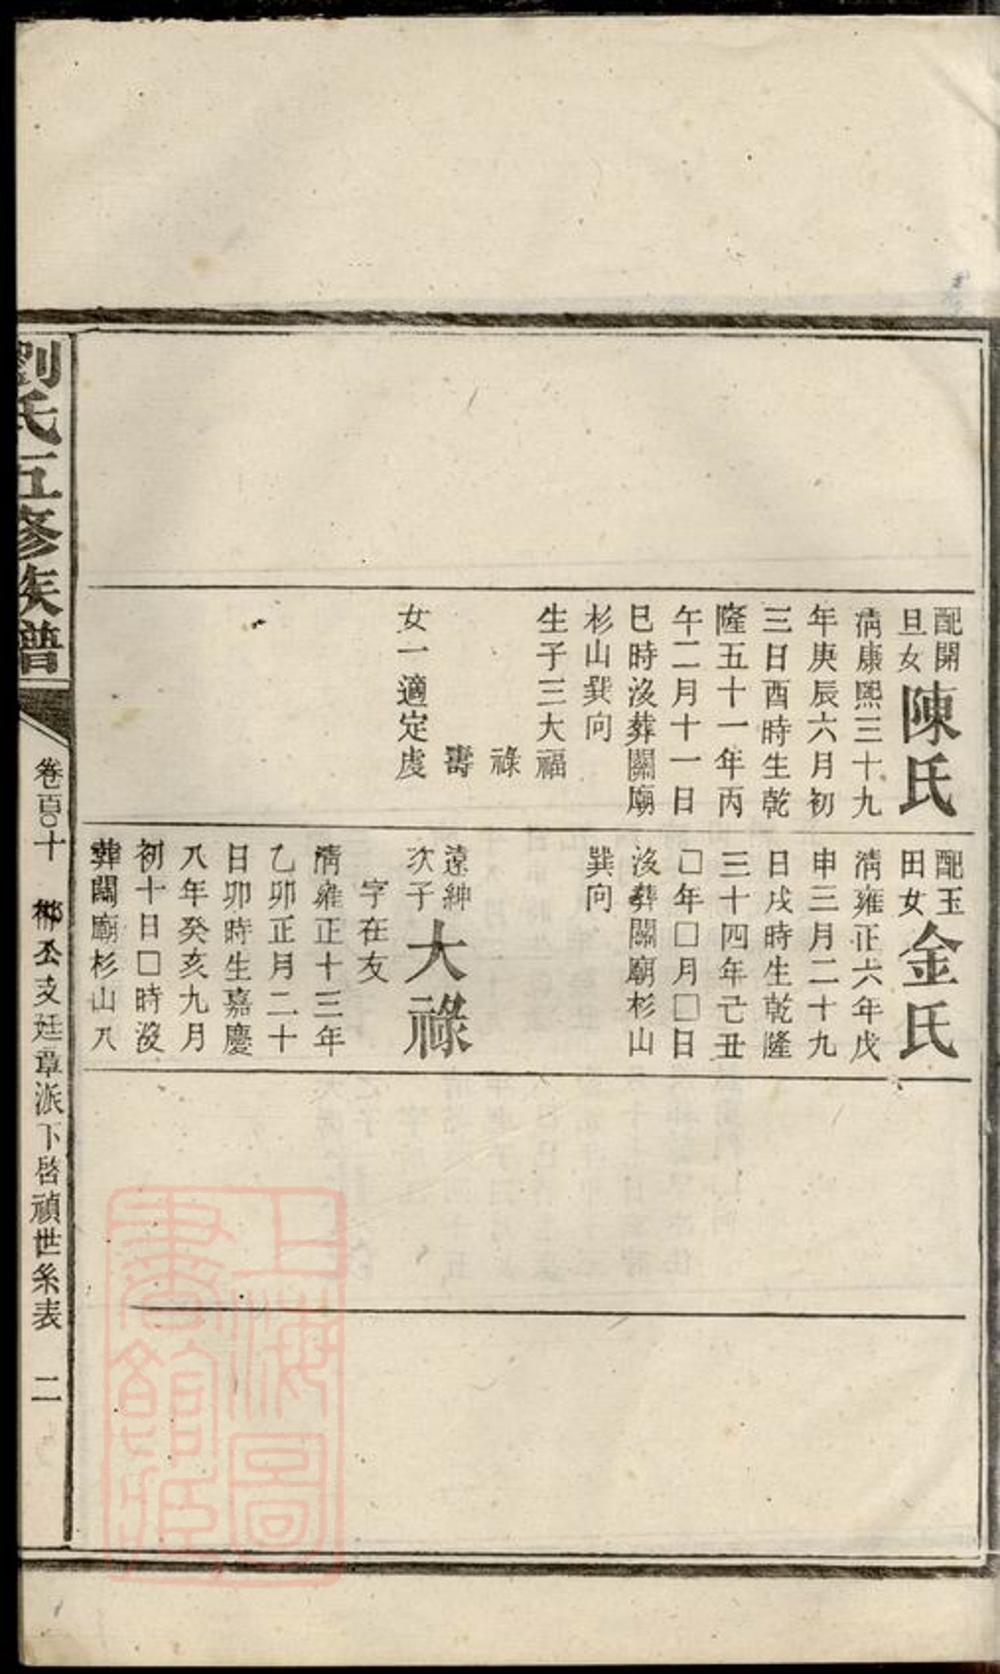 配開
旦女
陳氏
淸康熙三十九
年庚辰六月初
三日酉時生乾
隆五十一年丙
午二月十一日
巳時沒葬關廟
杉山巽向
生子三大福
祿
壽
女一適定虔
配玉
田女
金氏
淸雍正六年戊
申三月二十九
日戌時生乾隆
三十四年己丑
□年□月□日
沒葬關廟杉山
巽向
遠紳
次子
大祿
字在友
淸雍正十三年
乙卯正月二十
日卯時生嘉慶
八年癸亥九月
初十日□時沒
葬關廟杉山八
劉氏五修族譜
卷百〇十
公支廷章派下啓禎世系表
二
上海圖
書館藏